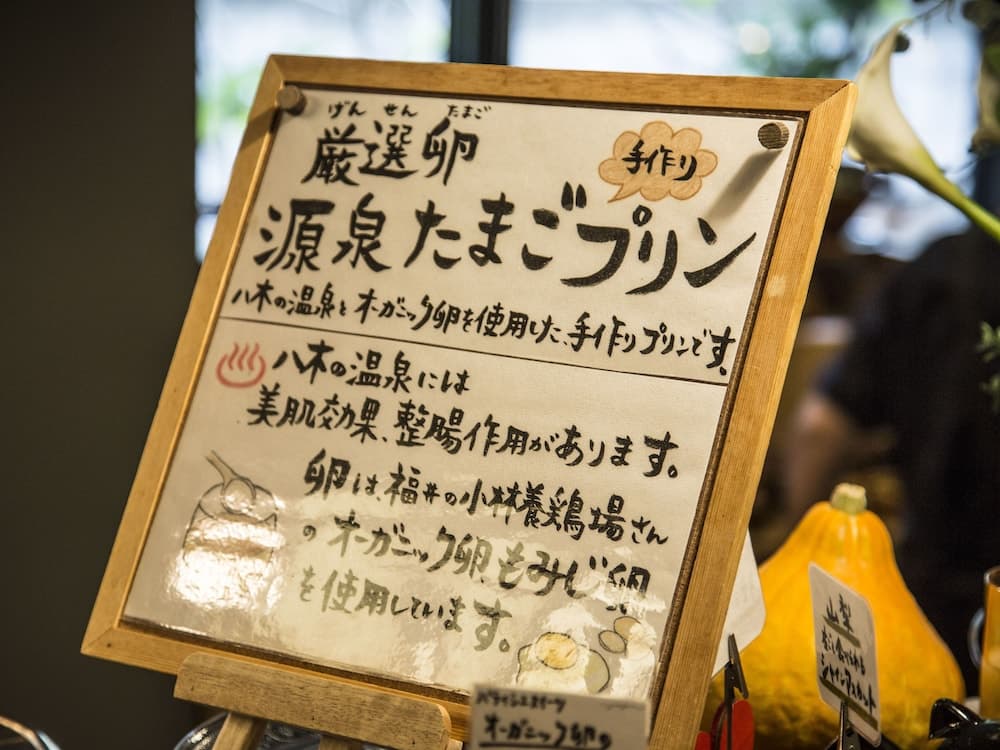 げんせん たまご
厳選卵
手作り
源泉たまごプリン
八木の温泉とオーガニック卵を使用した、手作りプリンです。
八木の温泉には
美肌効果、整腸作用があります。
卵は、福井の小林養鶏場さん
の オーガニック卵、もみじ卵
を使用しています。
オーガニック卵の
山梨
シャインマスカット